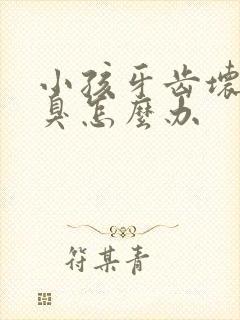 小孩牙齿坏
臭怎麼办
符某青